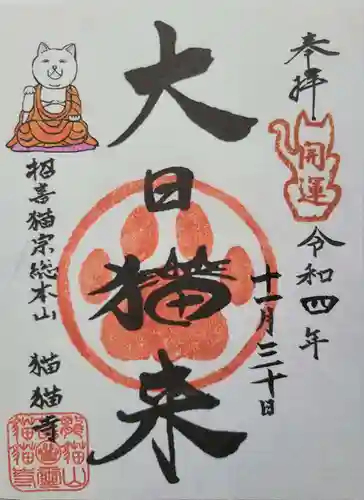 奉拝
開運
令和四年
十一月三十日
大日猫来
招喜猫宗総本山 猫猫寺